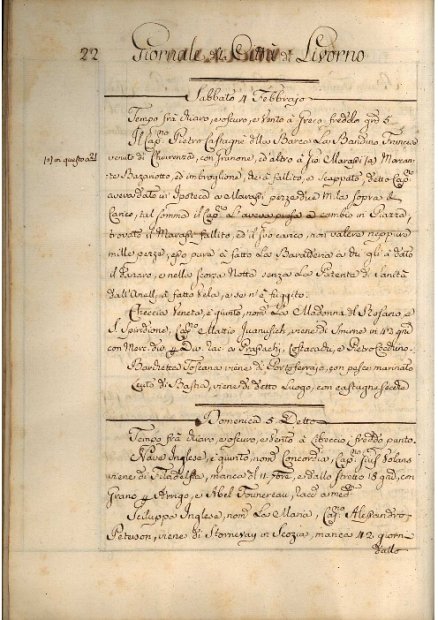 22 Giornale di Città di Livorno
Sabbato 4 Febbrajo
Tempo frà chiaro, e oscuro, e vento à Greco freddo grs 5
Il Capno. Pietro Castagnè della Barca La Bandina Francese
venete di Chiarenza, con Granone, ed altro à Gio Marassi (a) Marcan-
te Bazariotto, ed imbroglione, ed à fallito, e scappato, detto Capno
aveva dato in Ipoteca a Marassi pezze due Mila sopra il
Carico, tal somma il Capno à aveva presa a cambio in Piazza,
trovato il Marassi fallito, ed il suo carico, non valere neppure
mille pezze, e però à fatto La Baratteria a chi gli à dato
il Denaro, e nello scorsa Notte senza La Patente di Sanità
dall'Anell, à fatto Vela, e se n'è fuggito.
(a) in questo
Checcia Veneta, è giunto, nomta La Madonna del Rosario, e
S. Spiridione, Capno Mario Juanusich, viene di Smirne in 42 gni
con Merc. div.
Costacadu, e Pietro
Barchetta Toscana viene di Portoferrajo, con pesce marinato
Leuto di Bastia, viene di detto Luogo, con castagne secche
Domenica 5 Detto
Tempo frà chiaro, e oscuro, e Vento à Libeccio, freddo punto.
Nave Inglese, è giunto, nomta Concordia, Capno
viene di Filadelfia, manca dl 11 9bre, e dallo stretto 18 gni, con
Grano, e Abel Fonnereau, racc a med
Scaluppa Inglese, nomta La Maria, Capno Alessandro
Peterson, viene di Stornevay in Scozia, manca 42 giorni
dallo